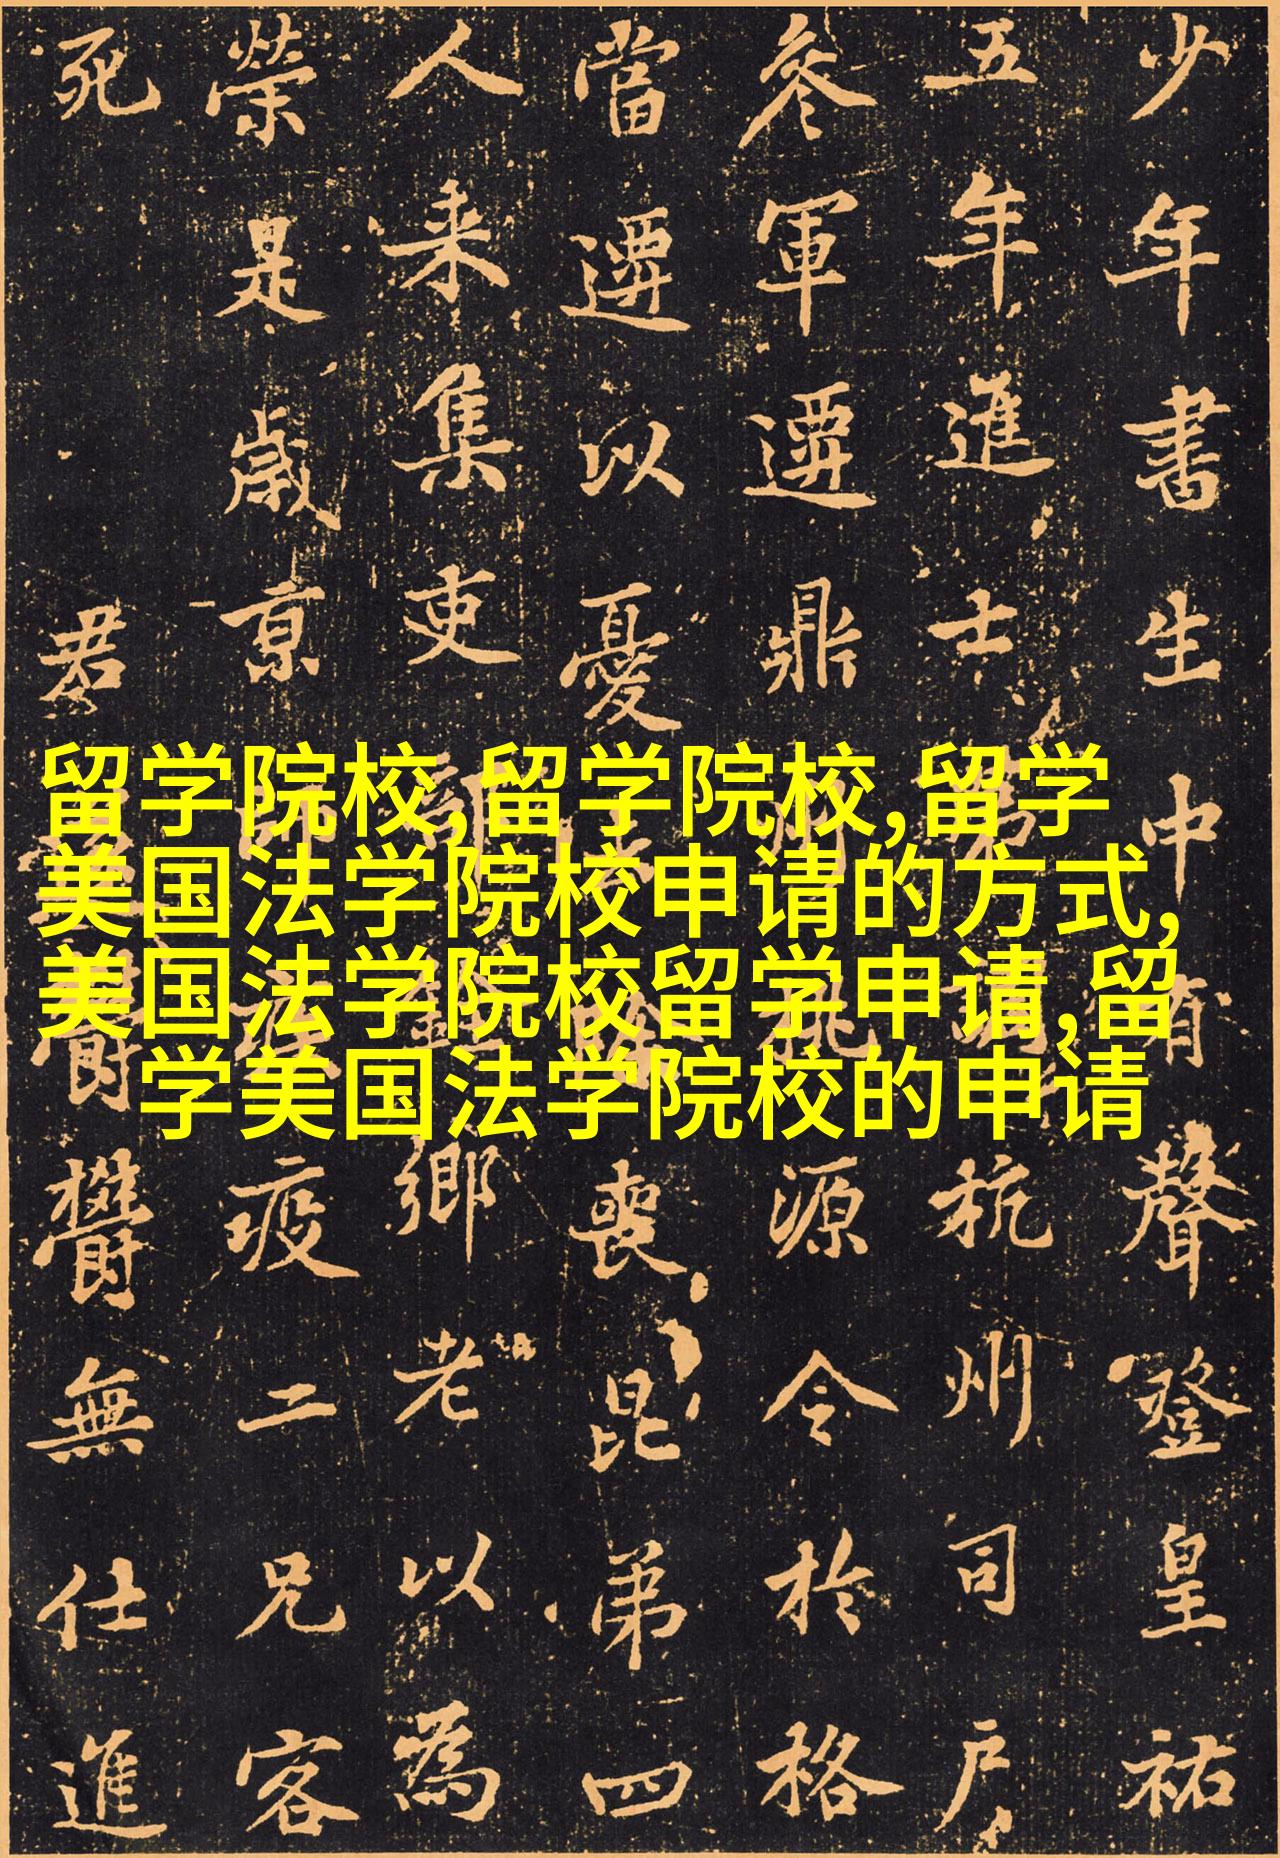 少年書生中有聲登皇祐
五年進士第調杭州司戶
參軍遷鼎州桃源令於格
當遷以憂喪昆弟四
人来集吏鄉老以為
榮是歲京師疫二兄客
死 君鬱無仕進
留学院校,留学院校,留学
美国法学院校申请的方式,
美国法学院校留学申请,留
学美国法学院校的申请